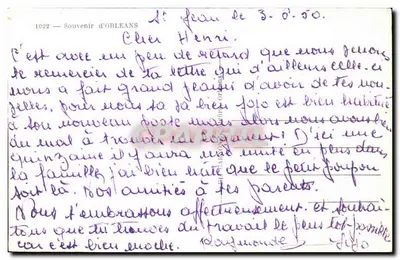 1022 — Souvenir d'ORLEANS
St Jean le 3-8-50.
Cher Henri.
C'est avec un peu de retard que nous venons
te remercier de ta lettre qui d'ailleurs celle-ci
nous a fait grand plaisir d'avoir de tes nou-
velles, pour nous sa jà bien fofo est bien
à son nouveau poste mais alors nous avons bien
du mal à trouver un logement D'ici une
quinzaine il y aura une unité en plus dans
la famille, j'ai bien hâte que le petit poupon
soit là. Nos amitiés à tes parents.
Nous t'embrassons affectueusement. et souhai-
tons que tu trouves du travail le plus tôt possible
car c'est bien moche. Raymonde